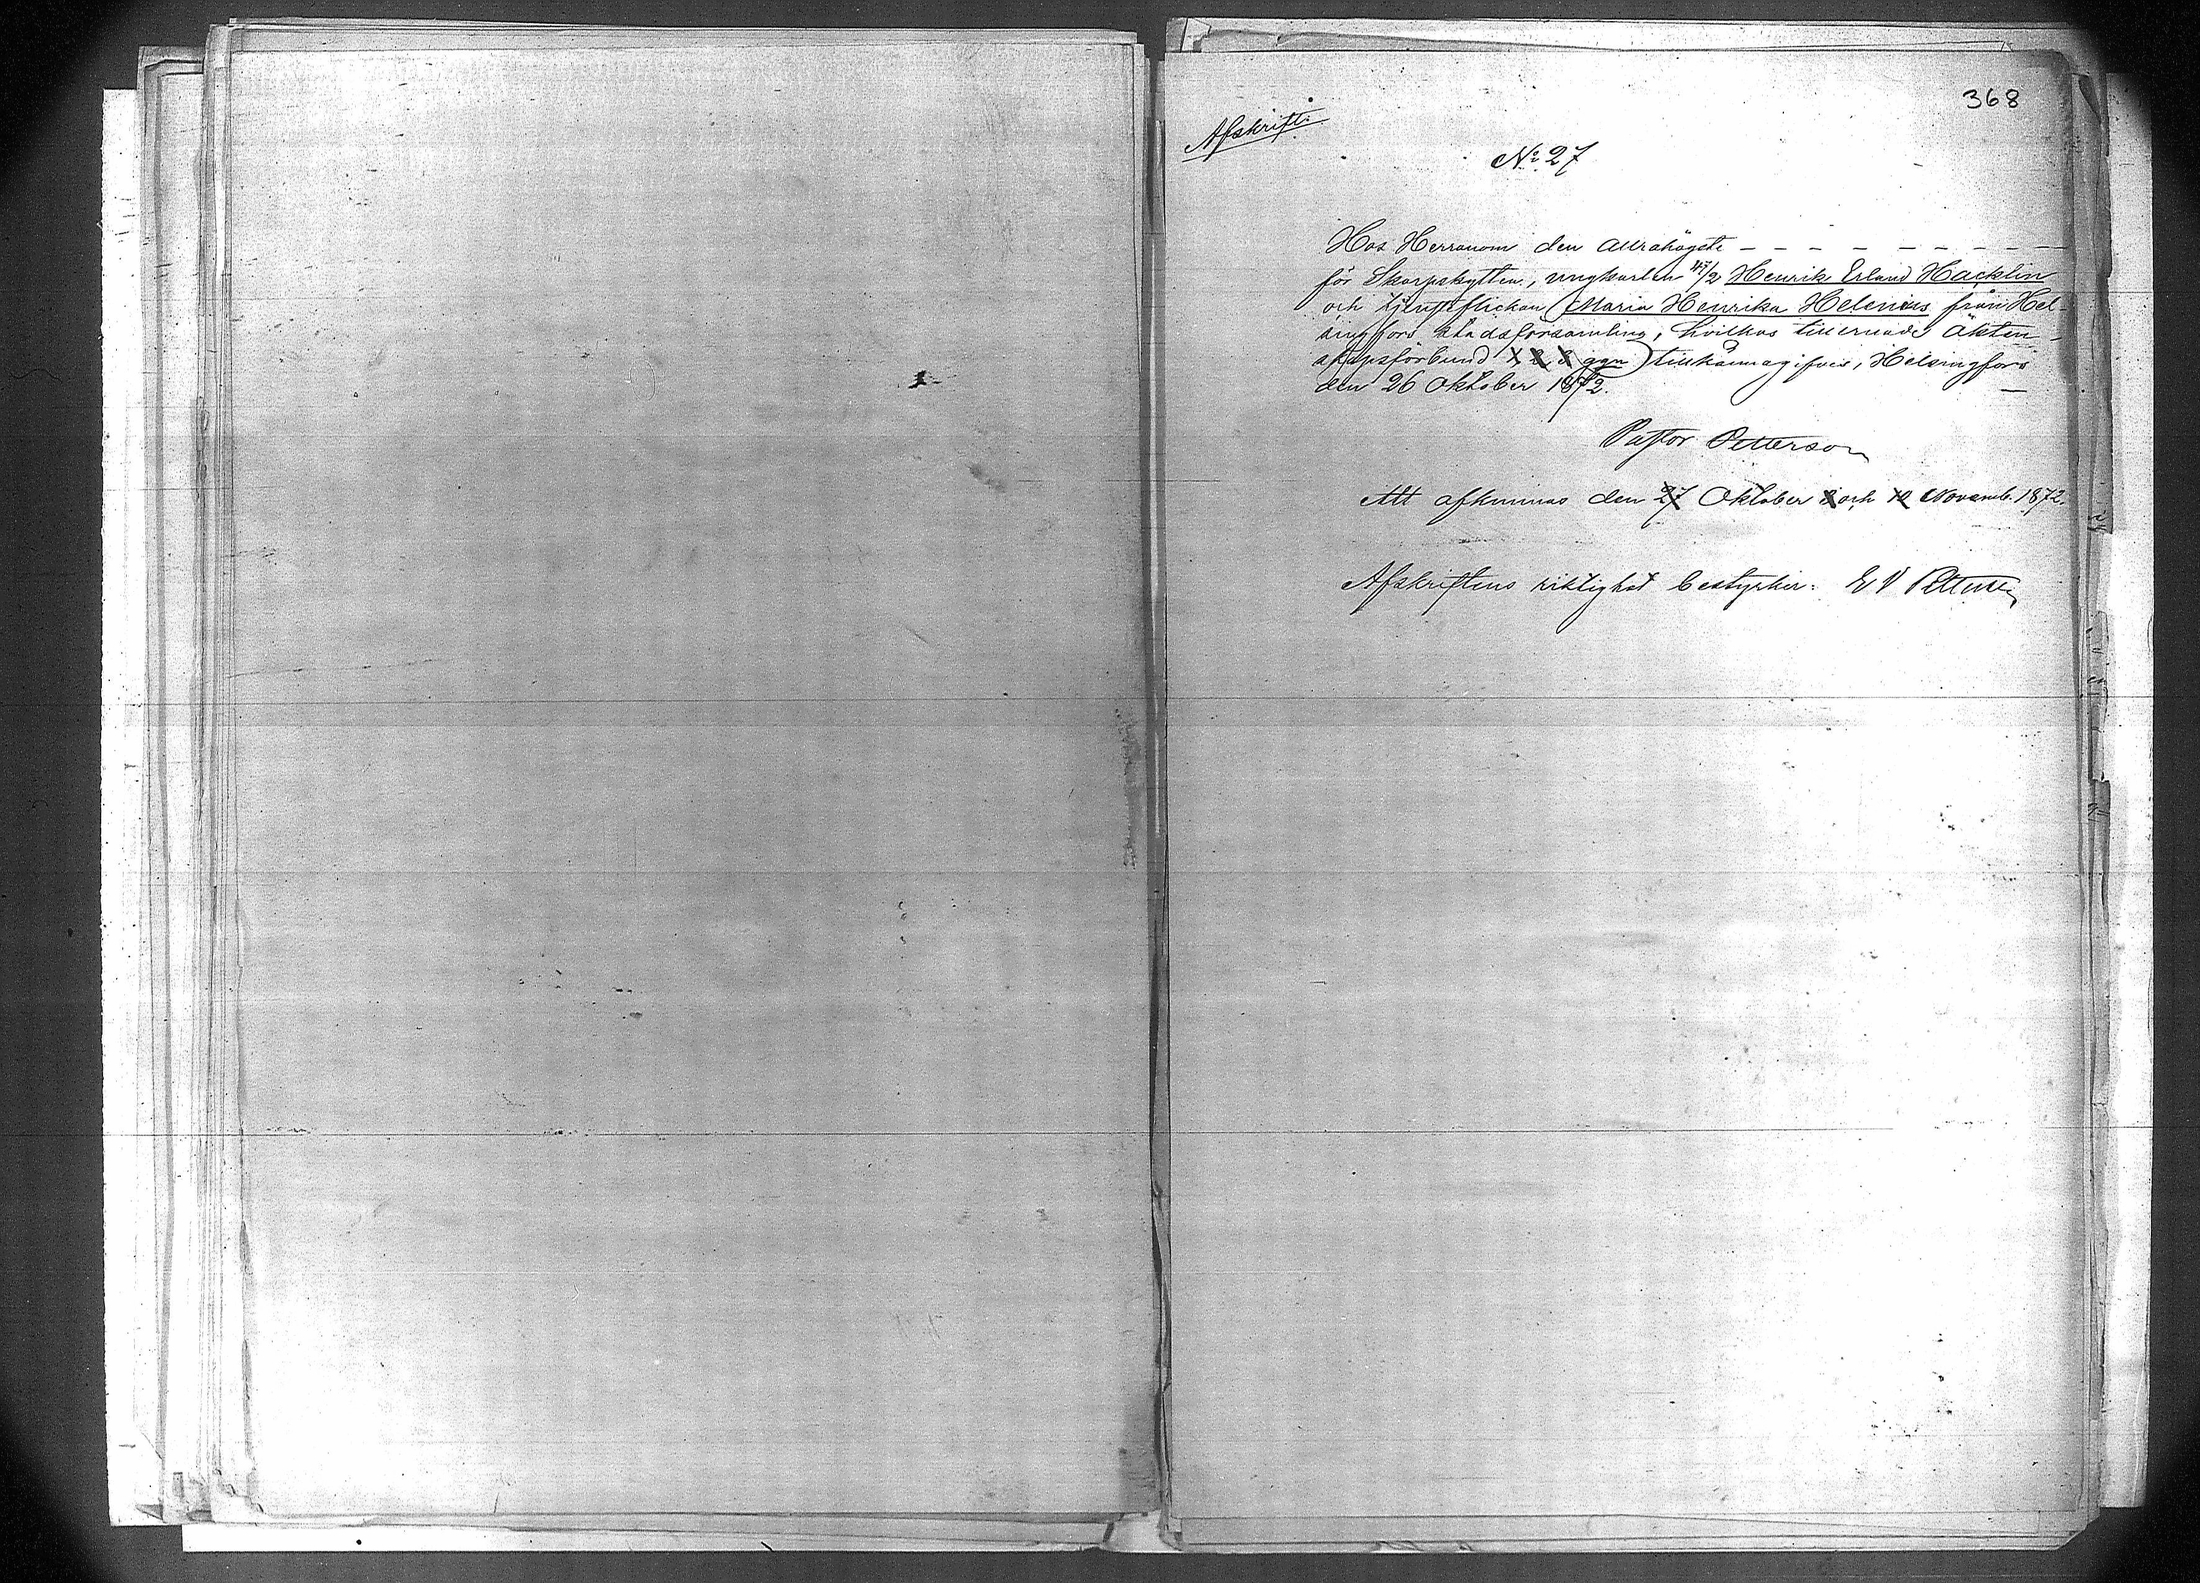 368
Afskrift.
No 27
Hos Herranom den allrahögste – – – – – – – –
för Skarpskytten, ungkarlen 45/2 Henrik Erland Hacklin
och tjenstflickan (Maria Henrika Helenius från Hel-
singfors stadsförsamling, hvilkas tillernade äkten-
skapsförbund X 2 3 ggn) tillkännagifves, Helsingfors
den 26 Oktober 1872. –
Pastor Petterson
Att afkunnas den 27 Oktober 3 och 10 Novemb. 1872.
Afskriftens riktighet bestyrker: E V Petterson